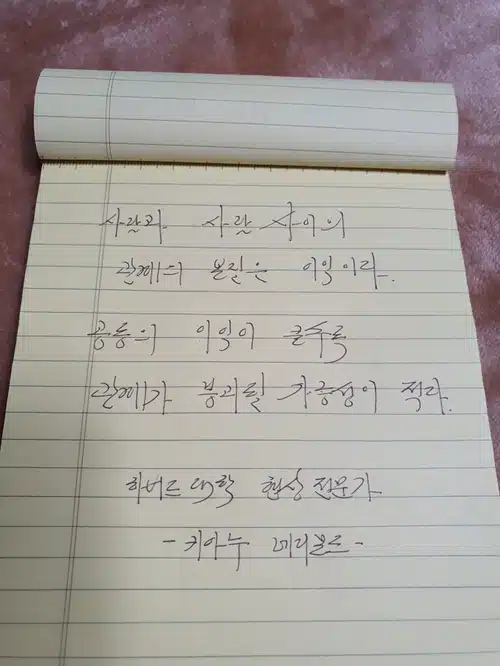 사람과 사람 사이의
관계의 본질은 이익이다.
공동의 이익이 클수록
관계가 붕괴될 가능성이 적다.
하버드 대학 협상 전문가
- 키아누 메리골드 -